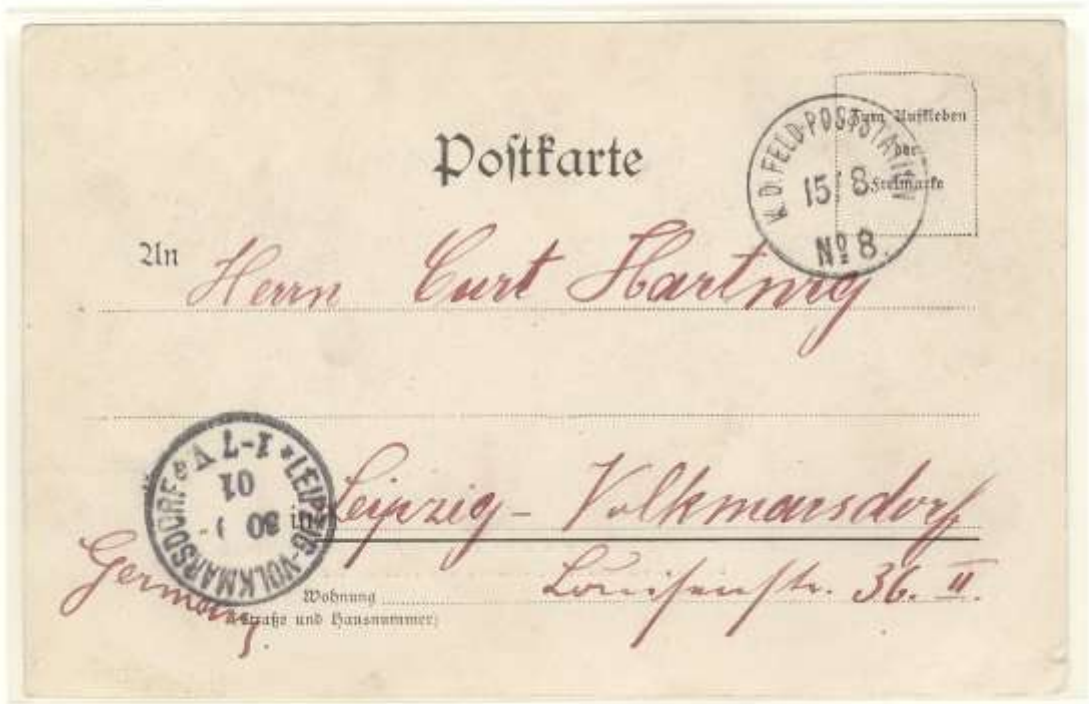 Postkarte
Zum Aufkleben
der
Freimarke
K.D. FELD-POSTSTATION
15/8
No 8.
An Herrn Curt Hartwig
LEIPZIG-VOLKMARSDORF
1-7 V
01
30
in Leipzig-Volkmarsdorf
Germany.
Wohnung Louisenstr. 36. II.
(Straße und Hausnummer)